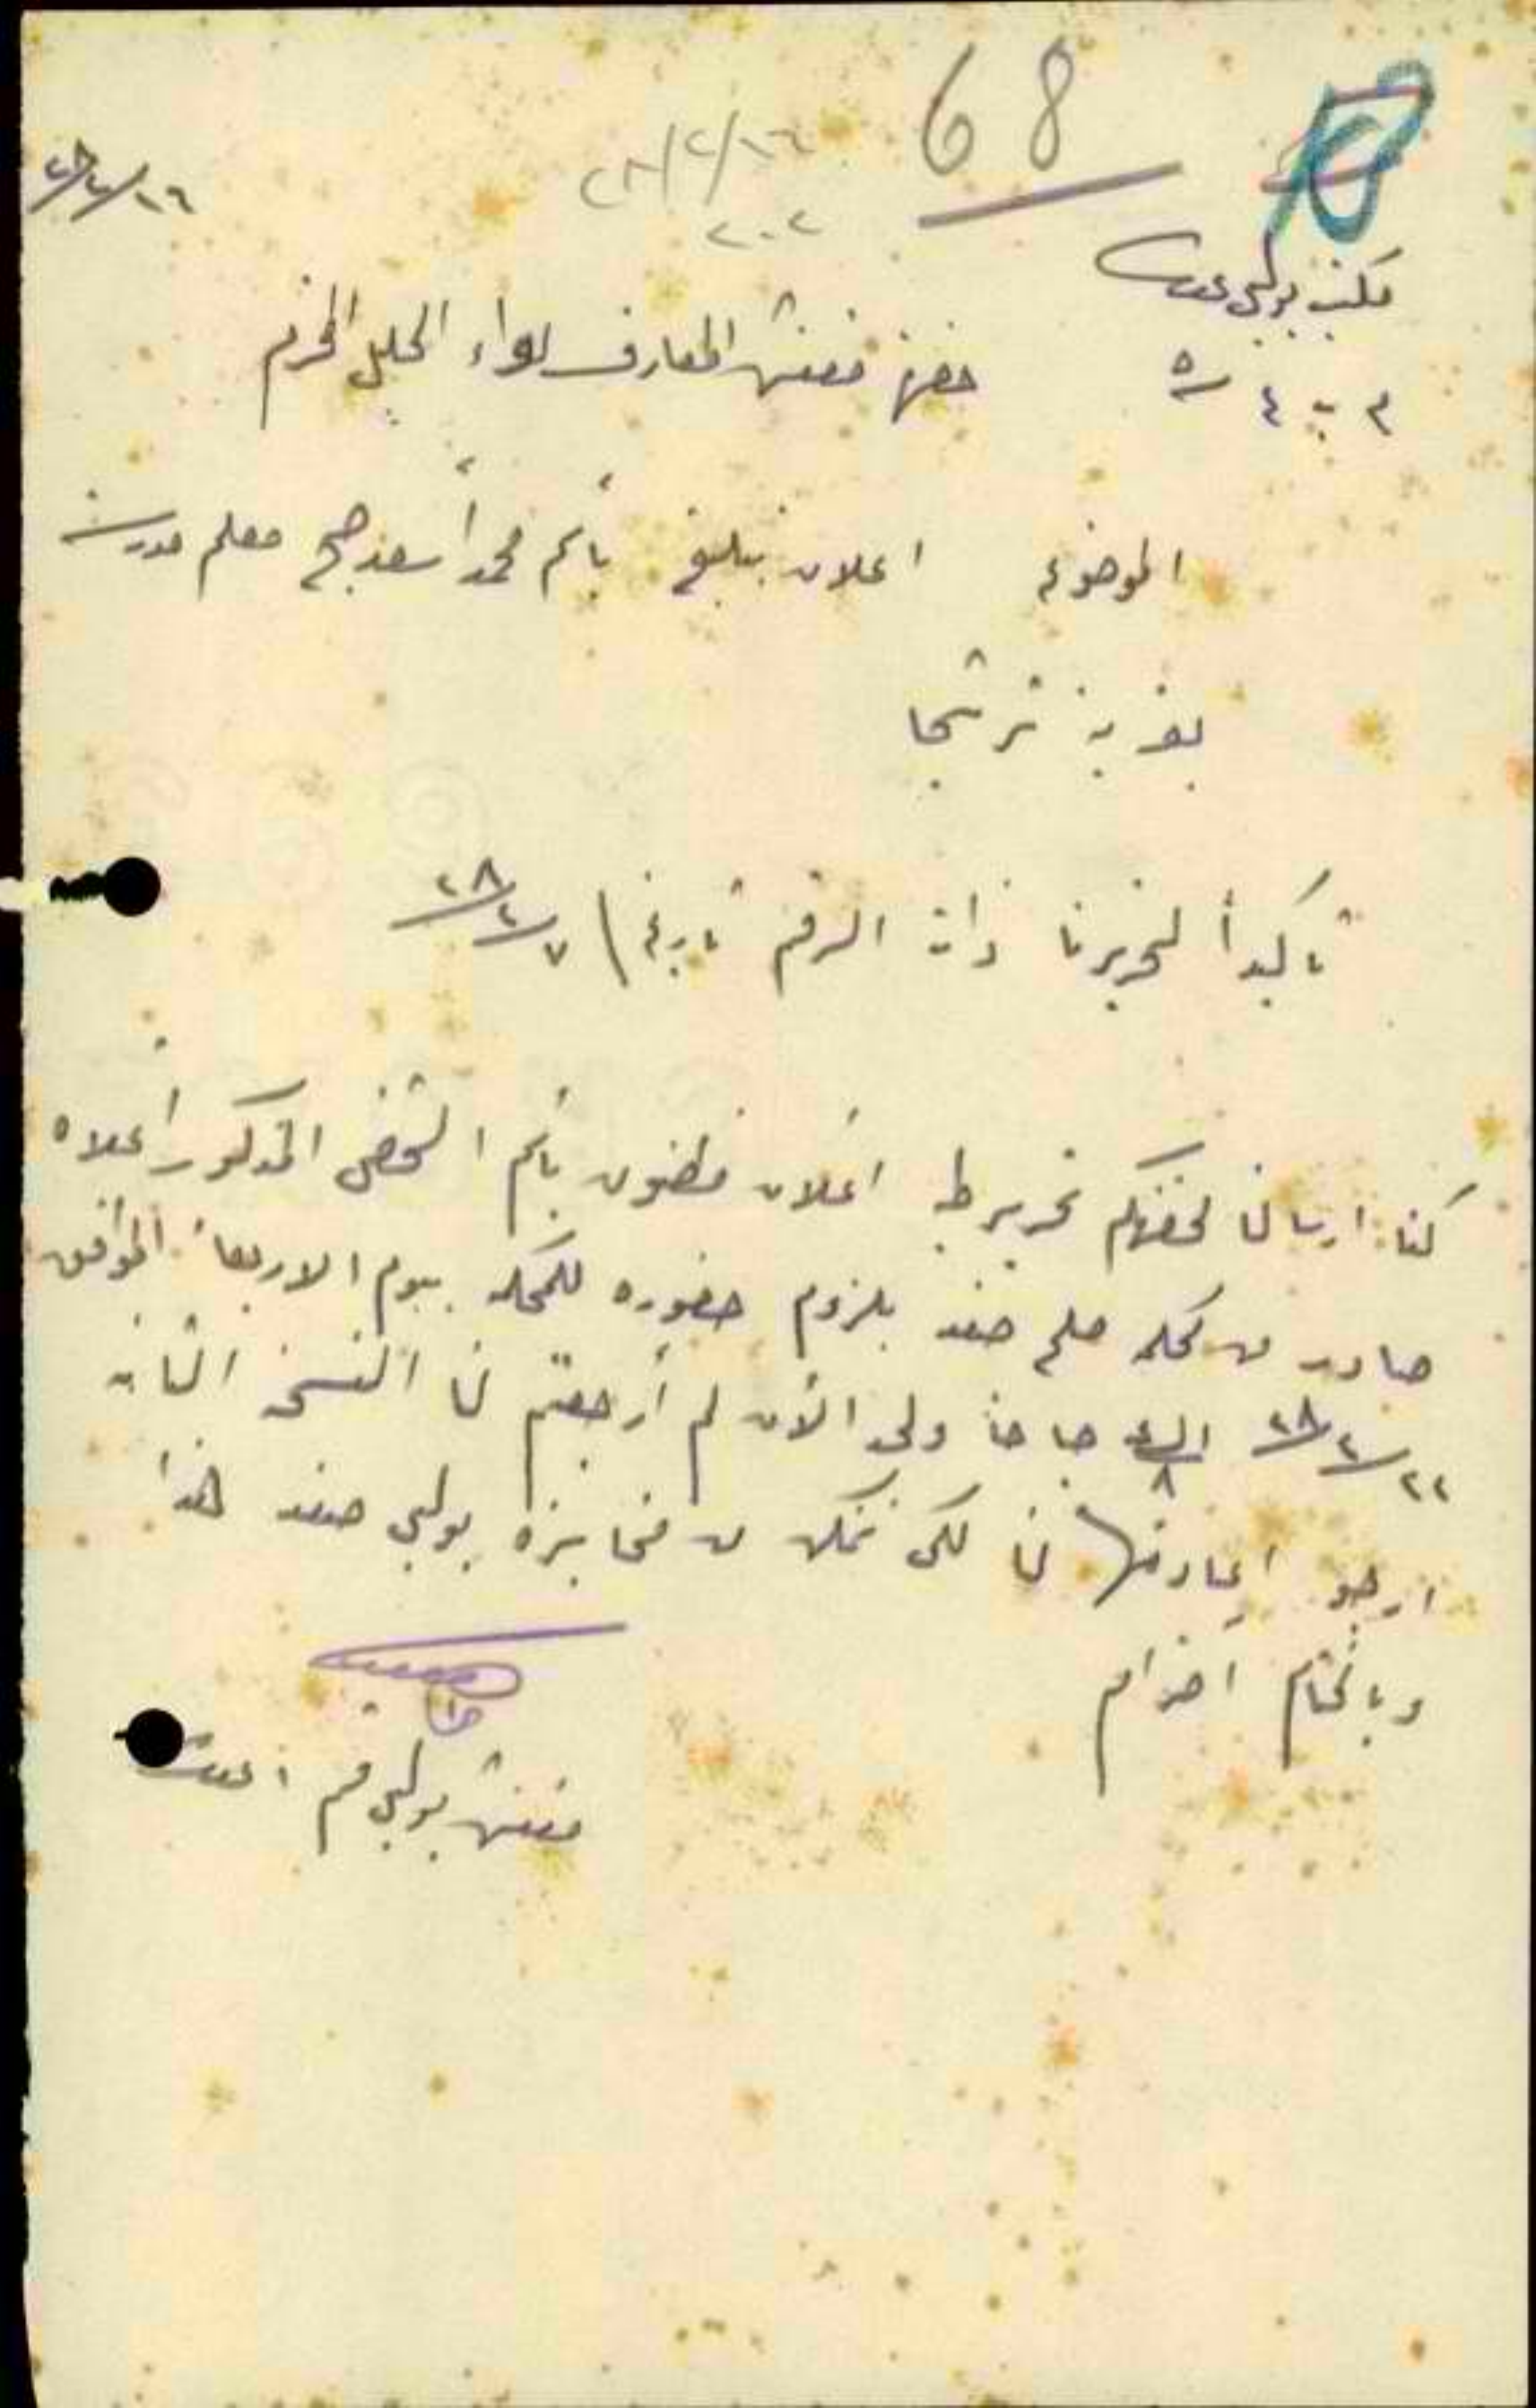 68
٢٨/٢/١٦
٢٠٢
٢٨/٢/١٦
مكتب بوليس عكا
٣ ب ٤ / ٥
حضرة مفتش المعارف لواء الجليل المحترم
الموضوع اعلان تبليغ باسم محمد أسعد صبح معلم مدرسة
بقرية ترشيحا
تأكيداً لتحريرنا ذات الرقم تاريخ ٢٨/٢/٧
كنا ارسلنا لحضرتكم تحرير طيه اعلان مظنون باسم الشخص المذكور أعلاه
صادر من محكمة صلح صفد بلزوم حضوره للمحكمة بيوم الاربعاء الموافق
٢٨/٢/٢٢ الساعة ٨ صباحا ولحد الآن لم أرجعتم لنا النسخة الثانية
ارجو اعادتها لنا لكي نتمكن من مخابرة بوليس صفد هذا
وبالختام احترام
مفتش بوليس قسم عكا